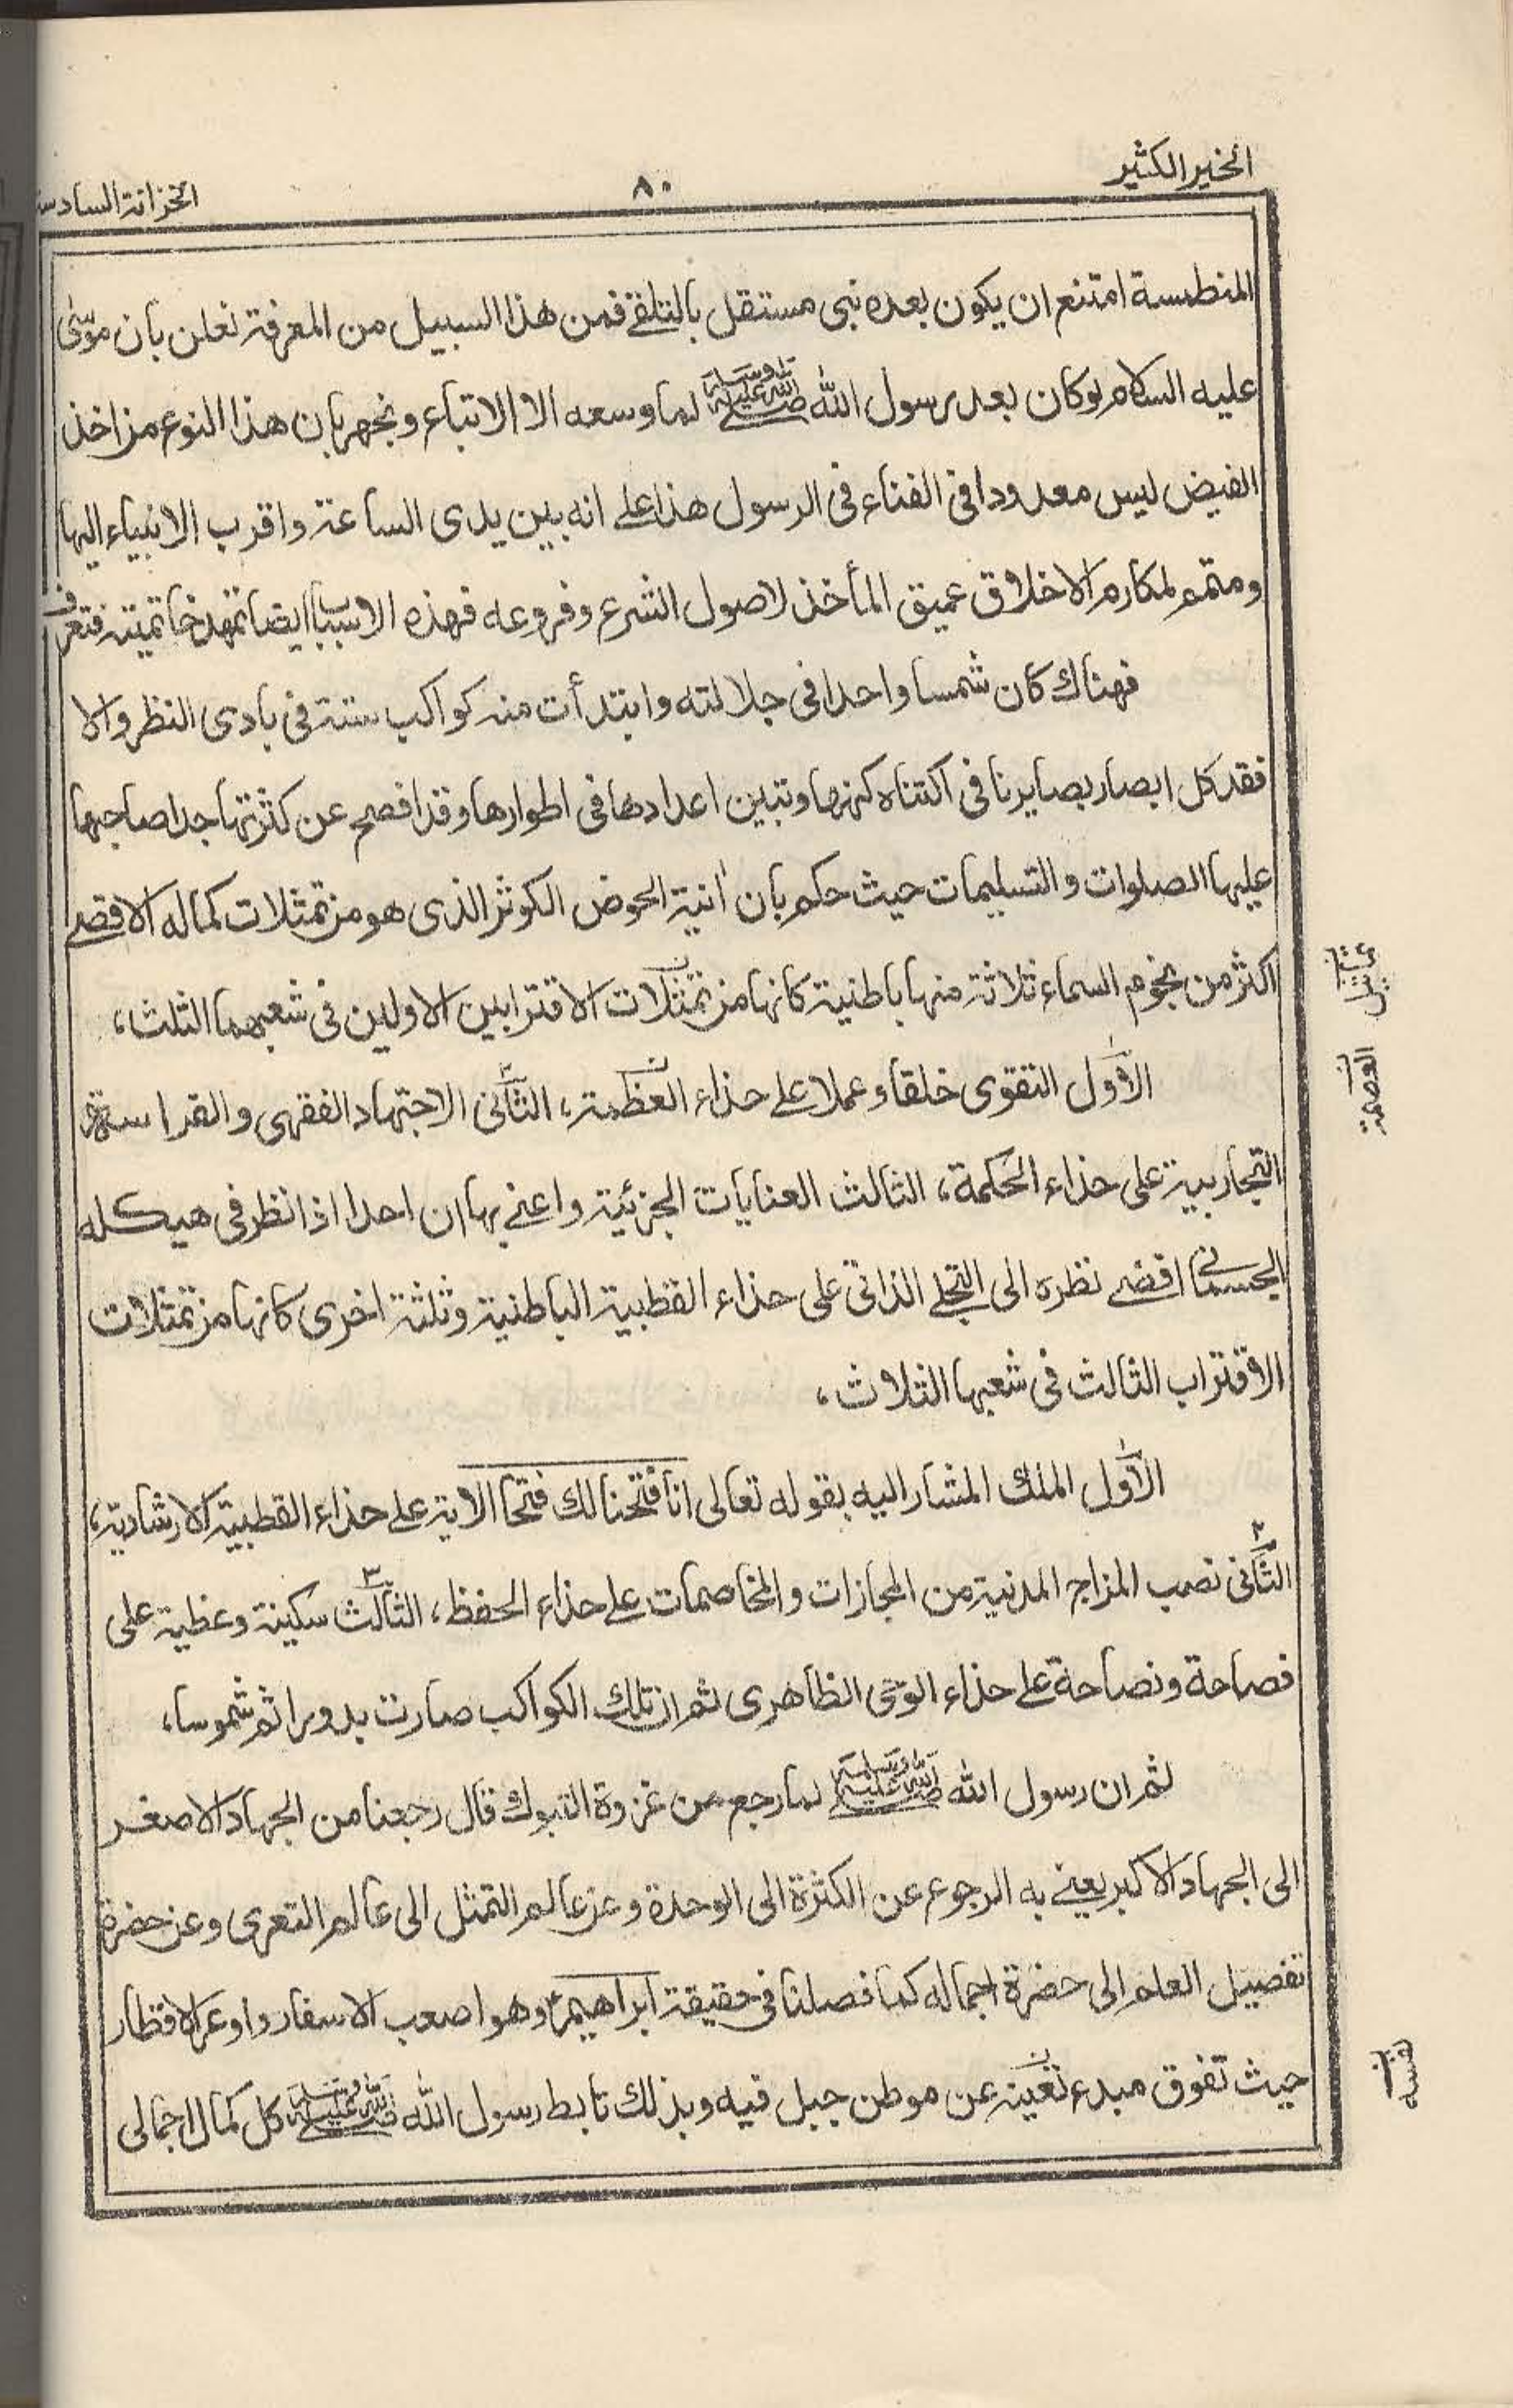 الخير الكثير
٨٠
الخزانة السادسة
المنطسة امتنع ان يكون بعده نبى مستقل بالتلقے فمن هذا السبيل من المعرفة نعلن بان موسىٰ
عليه السلام لو كان بعد رسول الله صلى الله عليه وسلم لما وسعه الا الاتباع ونجهر بان هذا النوع من اخذ
الفيض ليس معدودا فى الفناء فى الرسول هذا علے انه بين يدى الساعة واقرب الانبياء اليها
ومتمم لمكارم الاخلاق عميق المأخذ لاصول الشرع وفروعه فهذه الاسباب ايضا تمهد خاتميته فتعرف
فهناك كان شمسا واحدا فى جلالته وابتدأت منه كواكب ستة فى بادى النظر والا
فقد كل ابصار بصايرنا فى اكتناه كنهها وتبين اعدادها فى اطوارها وقد افصح عن كثرتها جدا صاحبها
عليها الصلوات والتسليمات حيث حكم بان اٰنية الحوض الكوثر الذى هو من تمثلات كماله الاقصے
اكثر من نجوم السماء ثلاثة منها باطنية كانها من تمثلات الاقترابين الاولين فى شعبهما الثلث،
الاول التقوى خلقا وعملا على حذاء العظمة، الثانى الاجتهاد الفقهى والفراسة
التجاربية على حذاء الحكمة، الثالث العنايات الجزئية واعنے بها ان احدا اذا نظر فى هيكله
الجسمانے افضے نظره الى التجلے الذاتى على حذاء القطبية الباطنية وثلثة اخرى كانها من تمثلات
الاقتراب الثالث فى شعبها الثلاث،
الاول الملك المشار اليه بقوله تعالى انا فتحنا لك فتحا الاية علے حذاء القطبية الارشادية،
الثانى نصب المزاج المدنية من المجازات والمخاصمات علے حذاء الحفظ، الثالث سكينة وعظية على
فصاحة ونصاحة علے حذاء الوحى الظاهرى ثم ان تلك الكواكب صارت بدورا ثم شموسا،
ثم ان رسول الله صلى الله عليه وسلم لما رجع من غزوة التبوك قال رجعنا من الجهاد الاصغر
الى الجهاد الاكبر يعنے به الرجوع عن الكثرة الى الوحدة وعن عالم التمثل الى عالم التعرى وعن حضرة
تفصيل العلم الى حضرة اجماله كما فصلنا فى حقيقة ابراهيم وهو اصعب الاسفار واوعر الاقطار
حيث تفوق مبدء تعينه عن موطن جبل فيه وبذلك تابط رسول الله صلى الله عليه وسلم كل كمال اجمالى
العصمة
نفسه